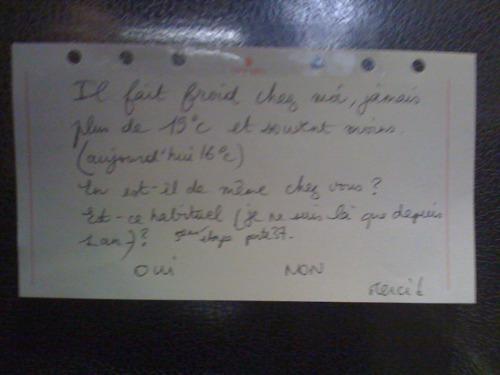 Il fait froid chez moi, jamais
plus de 19°c et souvent moins.
(aujourd'hui 16°c)
En est-il de même chez vous ?
Est-ce habituel (je ne suis là que depuis
1 an) ? 5ème étage porte 37.
OUI NON
Merci !